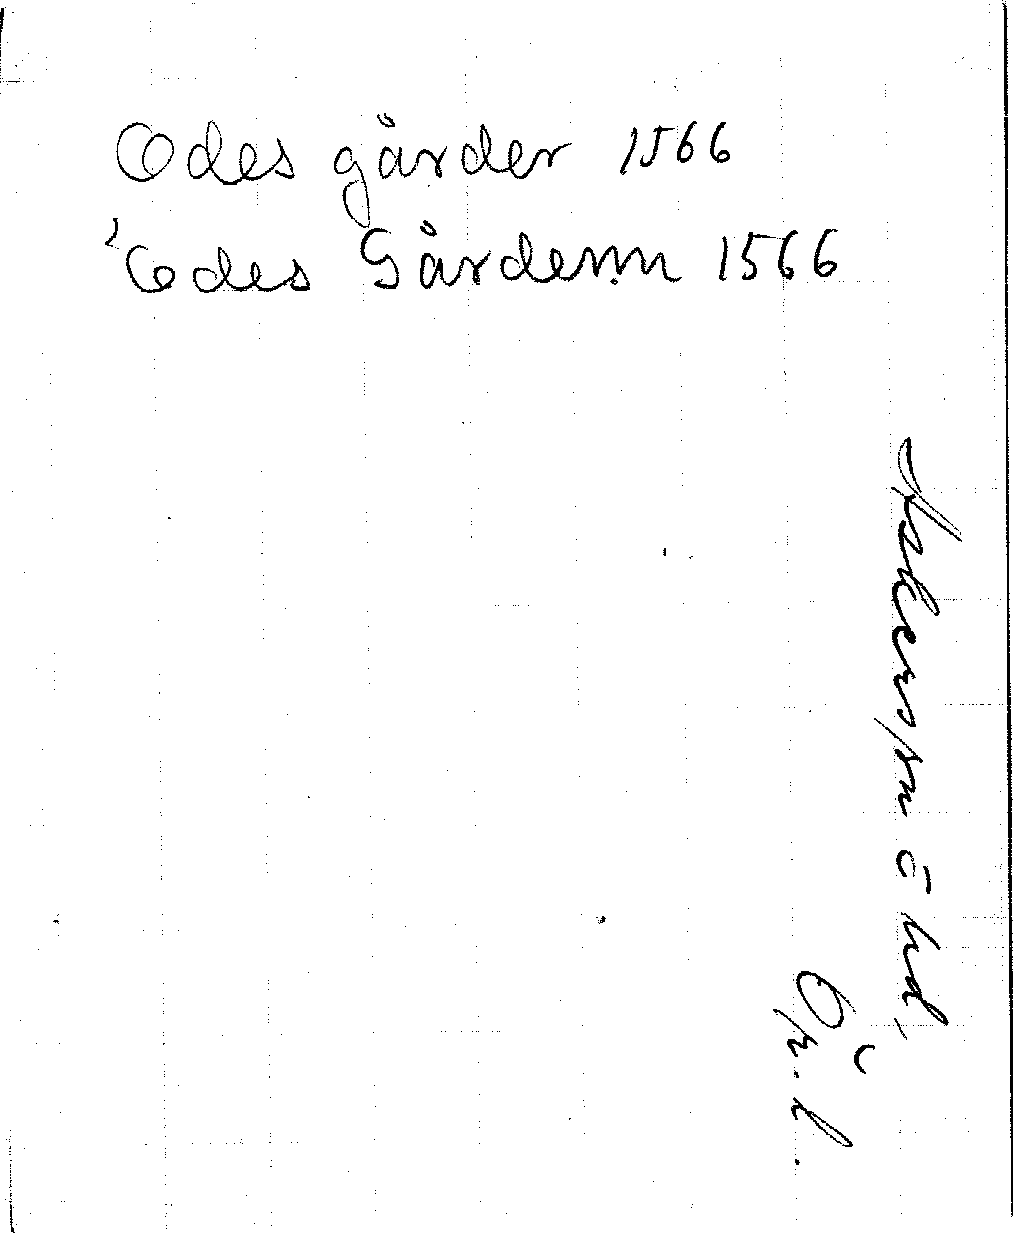 Odes gårder 1566
Odes Gårdenn 1566
Askersnn ō hd,
Ör. l.